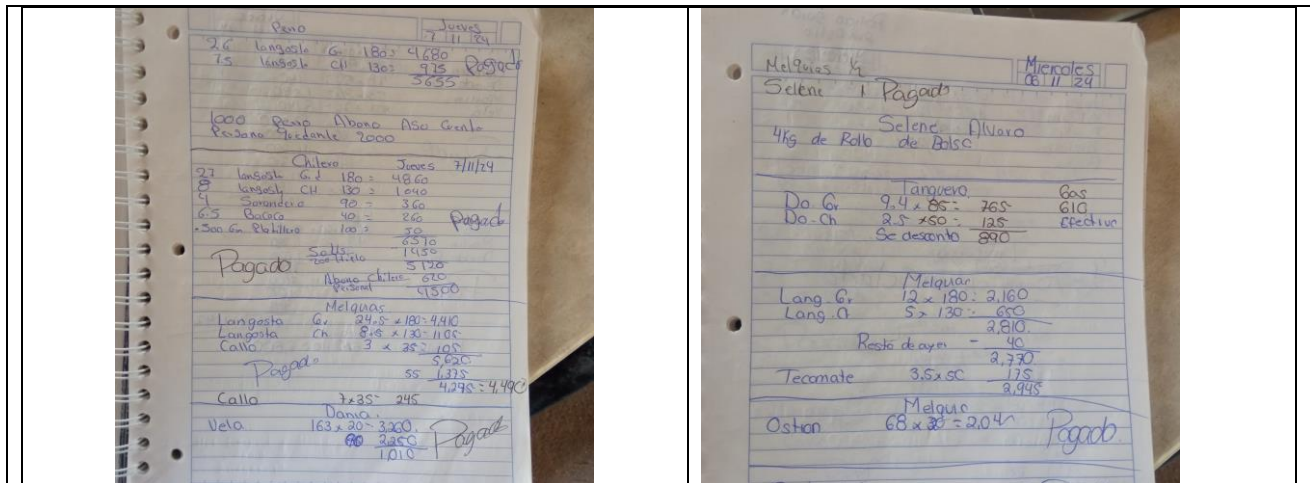 Peno Jueves
7 11 24
26 langosta G. 180= 4680
7.5 langost CH 130= 975 Pagado
5655
1000 Peno Abono
Persona 2000
Chilero Jueves 7/11/24
27 langost Gd 180= 4860
8 langost CH 130= 1040
4 90= 360
6.5 40= 260 Pagado
.500 Gr Platillero 100= 50
6570
Pagado 1450
5120
Abono Chilero 620
Personal 4500
Melquias
Langosta Gr 24.5 x180=4,410
Langosta Ch 8.5 x130=1105
Callo 3 x 35= 105
5,620
Pagado 55 1,375
4,295=4,490
Callo 7x35= 245
Dania.
Vela 163x20=3,260
90 2,250 Pagado
1,010
Melquias Miercoles
08 11 24
Selene 1 Pagado
Selene Alvaro
4Kg de Rollo de Bolsa
Tanquero Gas
Do Gr 9.4 x 85= 765 610
Do-Ch 2.5 x50= 125 Efectivo
Se desconto 890
Melquias
Lang. Gr 12 x 180= 2,160
Lang. Ch 5 x 130= 650
2,810
Resto de ayer - 40
2,770
Tecomate 3.5x50 175
2,945
Melquis
Ostion 68 x 30 = 2,04 Pagado.